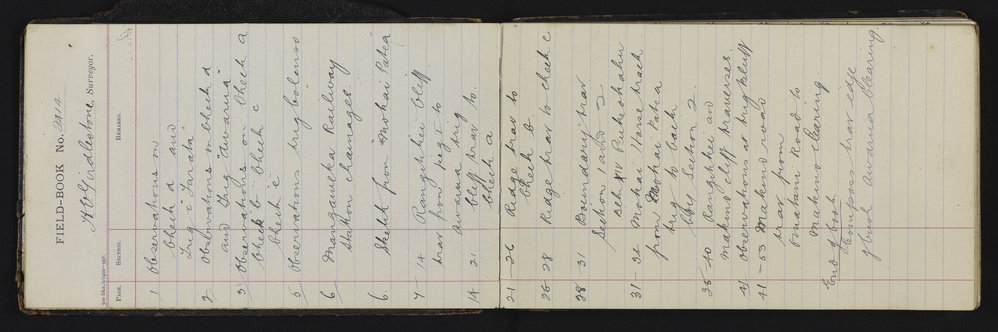 FIELD-BOOK No. 
H E Girdlestone, Surveyor.
PAGE. SECTION. REMARKS.
1 Observations on
check a and
Trig
2 Observations on check a
and Trig Awarua
3 Observations on Check a
Check b Check c
Check c
5 Observations trig
6 Mangaweka Railway
station chainages
6. Sketch from Mokai Patea
7-14 Rangitikei Cliff
trav from peg I to
Awarua trig
14 21 Cliff trav to
check a
21-26 Ridge trav to
Check B.
26-28 Ridge trav to check C
28 31 Boundary trav
Section 1 and 2
Blk XIV Pukeokahu
31-32 Mokai Horse track
from Mokai Patea
trig to back
bdy Section 2.
35-40 Rangitikei and
Makino cliff traverses
41 Observations at trig Bluff
41-53 Makino road
trav from
Omatane Road to
Makino Clearing
End of book
Compass trav edge
of bush Awarua Clearing